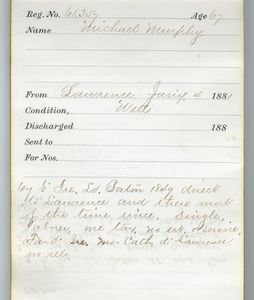 Reg. No. 61357 Age 67
Name Michael Murphy
From Lawrence Jany 4 1881
Condition, Well
Discharged 188
Sent to
For Nos.
67 E' Ire, Ld. Boston 1849 direct
to Lawrence and there most
of the time since. Single,
labor, one tax, no est. or service,
Fa. d' Ire. Mo. Cath. d' Lawrence.
no rel.